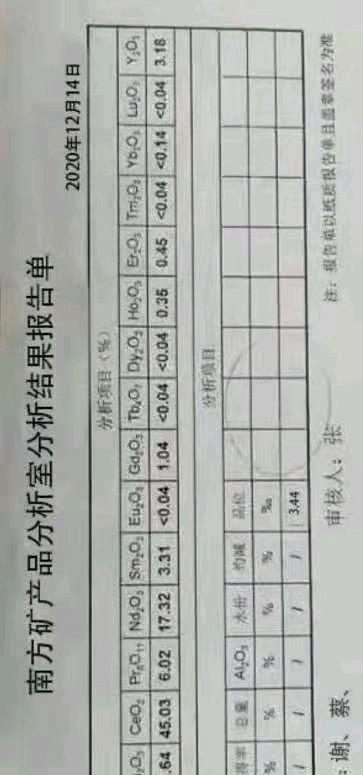 南方矿产品分析室分析结果报告单
2020年12月14日
分析项目（%）
₂O₃ CeO₂ Pr₆O₁₁ Nd₂O₃ Sm₂O₃ Eu₂O₃ Gd₂O₃ Tb₄O₇ Dy₂O₃ Ho₂O₃ Er₂O₃ Tm₂O₃ Yb₂O₃ Lu₂O₃ Y₂O₃
.64 45.03 6.02 17.32 3.31 <0.04 1.04 <0.04 <0.04 0.35 0.45 <0.04 <0.14 <0.04 3.18
分析项目
得率 总量 Al₂O₃ 水份 灼减 品位
% % % % % ‰
/ / / / 3.44
：谢、蔡、 审核人：张 注：报告单以纸质报告单且盖章签名为准